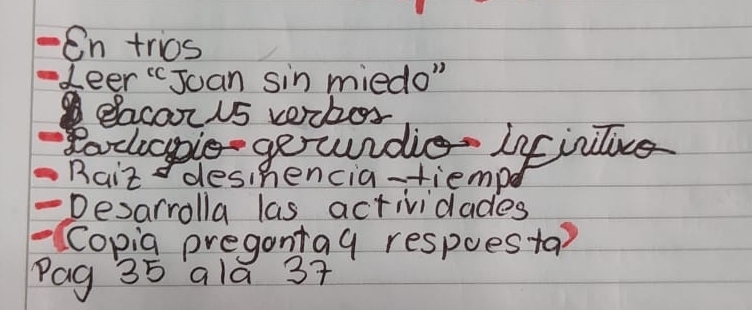 -En trios
-Leer "Juan sin miedo"
Sacar 15 verbos
-Participio-gerundio-infinitivo
-Raiz desinencia-tiempo
-Desarrolla las actividades
-(Copia pregunta y respuesta)
Pag 35 a la 37